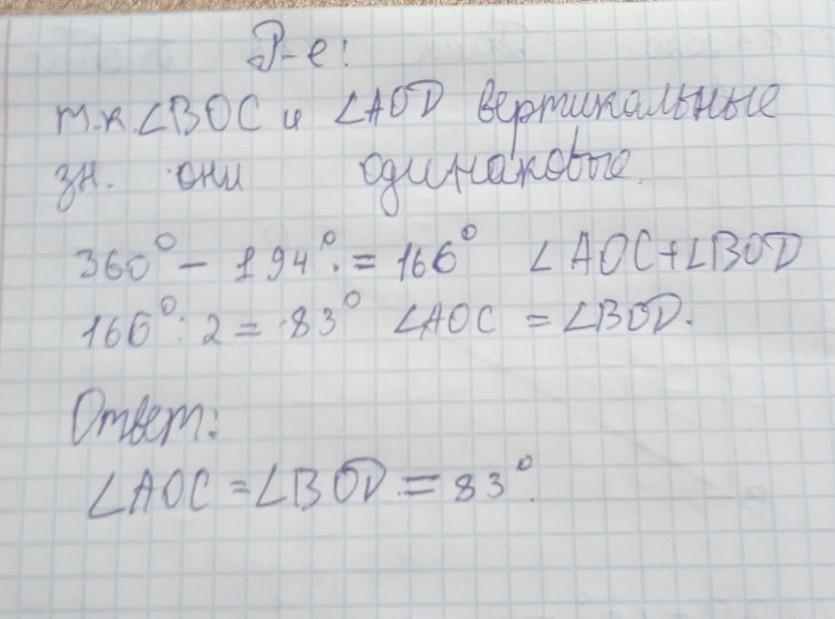 Р-е:
т.к. ∠BOC и ∠AOD вертикальные
зн. они одинаковые.
360° - 194° = 166° ∠AOC+∠BOD
166° : 2 = 83° ∠AOC = ∠BOD.
Ответ:
∠AOC = ∠BOD = 83°.